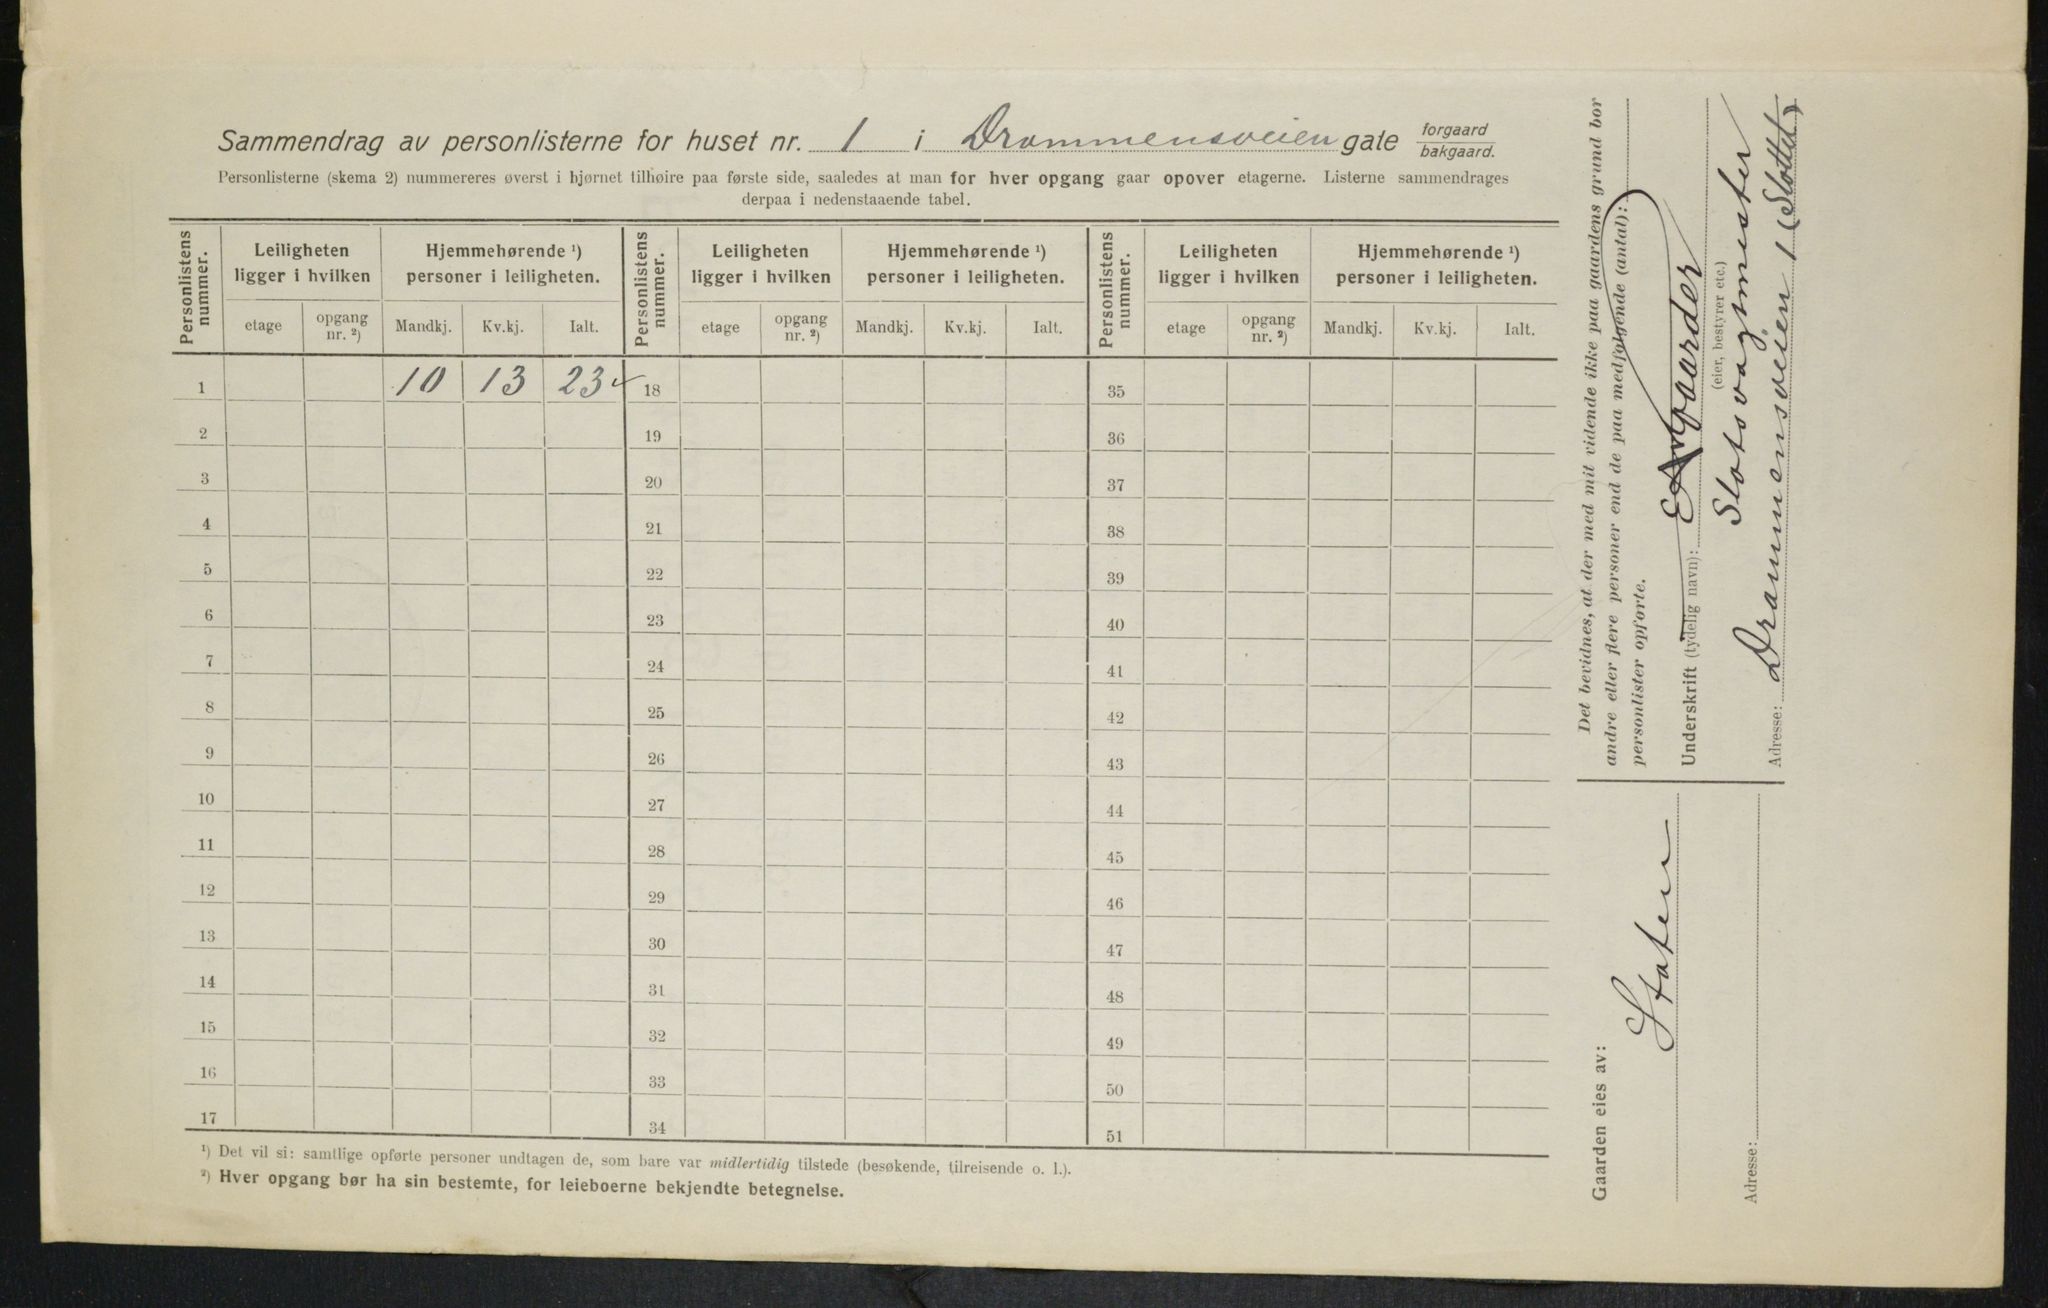 Sammendrag av personlisterne for huset nr. 1 i Drammensveien gate forgaard
bakgaard.
Personlisterne (skema 2) nummereres øverst i hjørnet tilhøire paa første side, saaledes at man for hver opgang gaar opover etagerne. Listerne sammendrages
derpaa i nedenstaaende tabel.
Personlistens nummer. Leiligheten ligger i hvilken Hjemmehørende ¹) personer i leiligheten. Personlistens nummer. Leiligheten ligger i hvilken Hjemmehørende ¹) personer i leiligheten. Personlistens nummer. Leiligheten ligger i hvilken Hjemmehørende ¹) personer i leiligheten.
etage opgang nr. ²) Mandkj. Kv.kj. Ialt. etage opgang nr. ²) Mandkj. Kv.kj. Ialt. etage opgang nr. ²) Mandkj. Kv.kj. Ialt.
1 10 13 23 ✓ 18 35
2 19 36
3 20 37
4 21 38
5 22 39
6 23 40
7 24 41
8 25 42
9 26 43
10 27 44
11 28 45
12 29 46
13 30 47
14 31 48
15 32 49
16 33 50
17 34 51
¹) Det vil si: samtlige opførte personer undtagen de, som bare var midlertidig tilstede (besøkende, tilreisende o. l.).
²) Hver opgang bør ha sin bestemte, for leieboerne bekjendte betegnelse.
Det bevidnes, at der med mit vidende ikke paa gaardens grund bor
andre eller flere personer end de paa medfølgende (antal):
personlister opførte.
Underskrift (tydelig navn):
(eier, bestyrer etc.)
Slotsvagtmester
Adresse: Drammensveien 1 (Slottet)
Gaarden eies av:
Staten
Adresse: